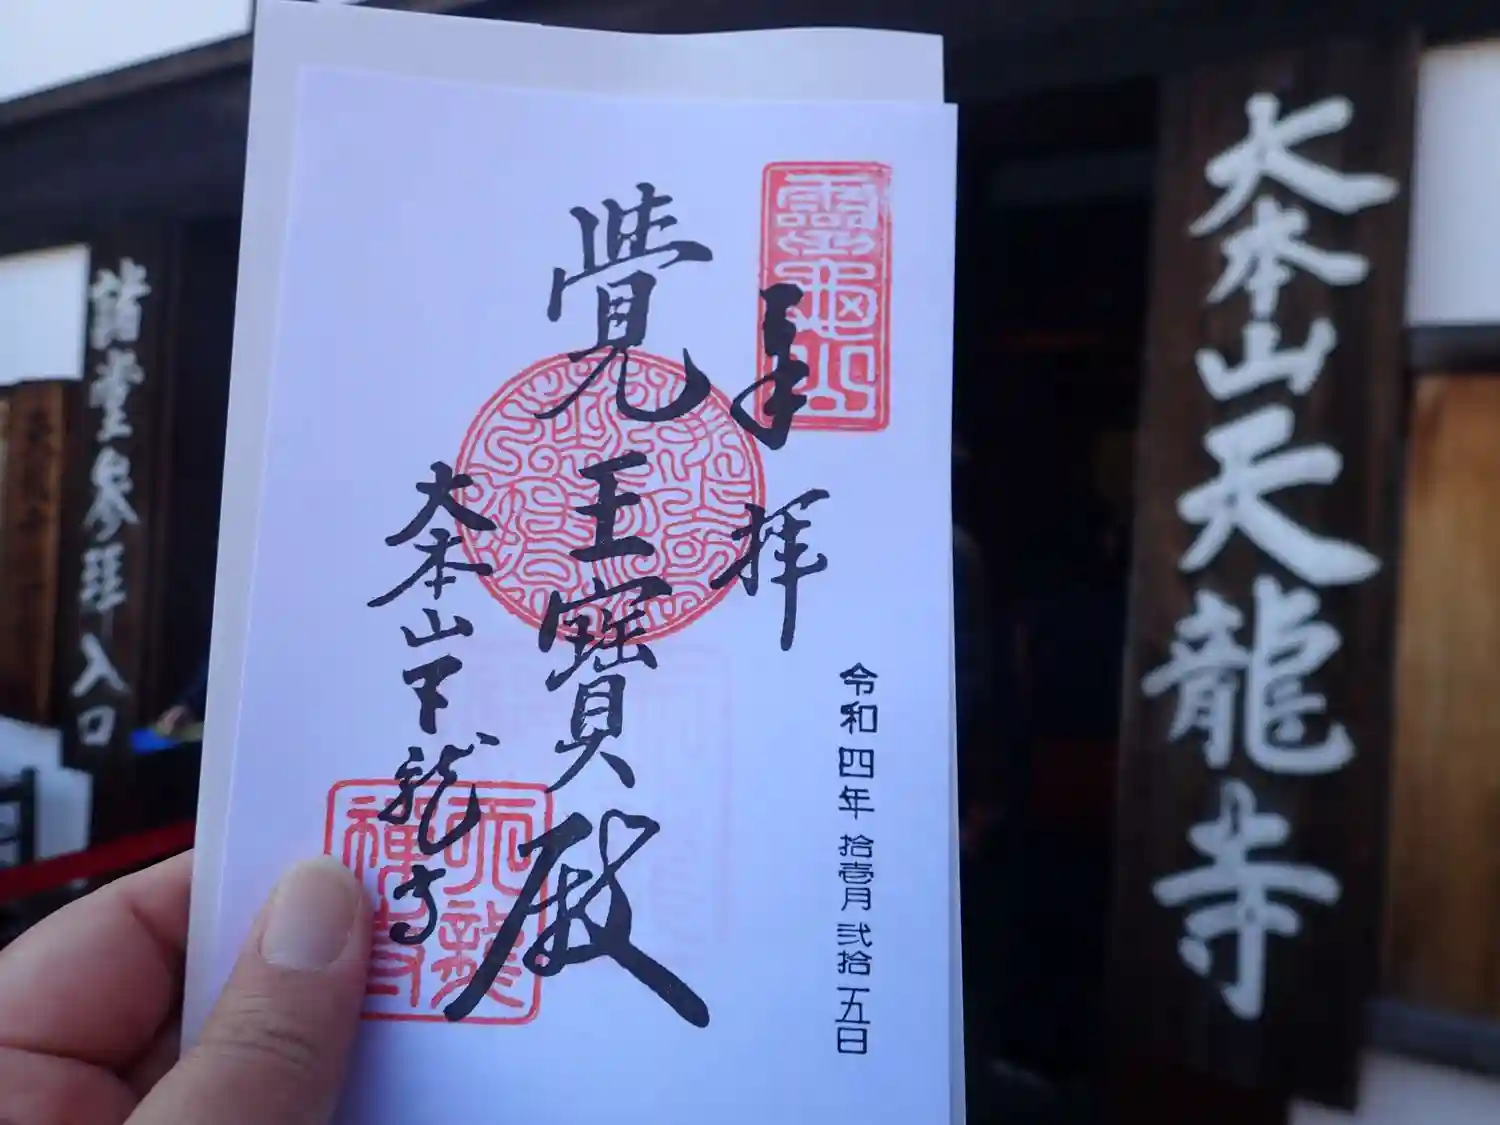 奉拝
覺王寶殿
大本山天龍寺
令和四年拾壱月弐拾五日
靈龜山
天龍禅寺
大本山天龍寺
諸堂参拝入口